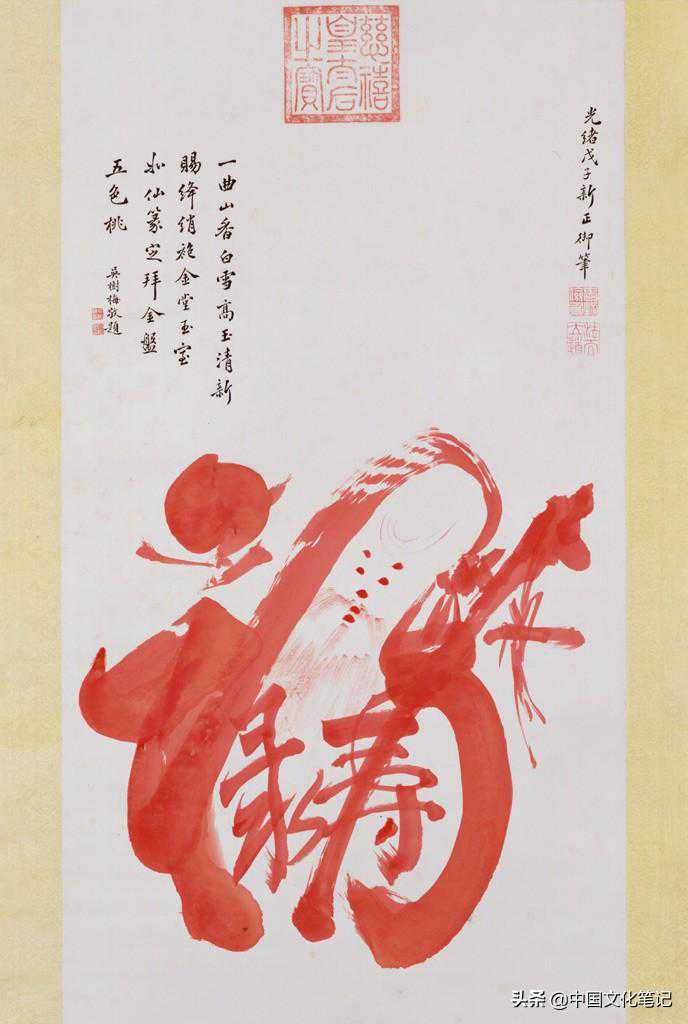 慈禧
皇太后
之寶
光緒戊子新正御筆
一曲山香白雪高玉清新
賜絳綃袍金堂玉室
如仙篆定拜金盤
五色桃
吳樹梅敬題
福
禄寿
头条 @中国文化笔记